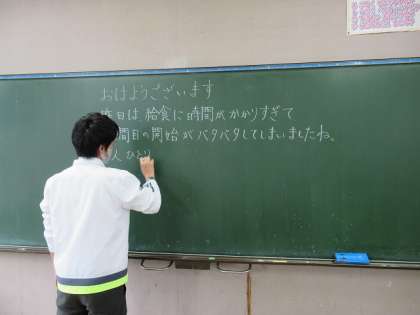 おはようございます
昨日は給食に時間がかかりすぎて
間目の開始がバタバタしてしまいましたね。
人ひとり